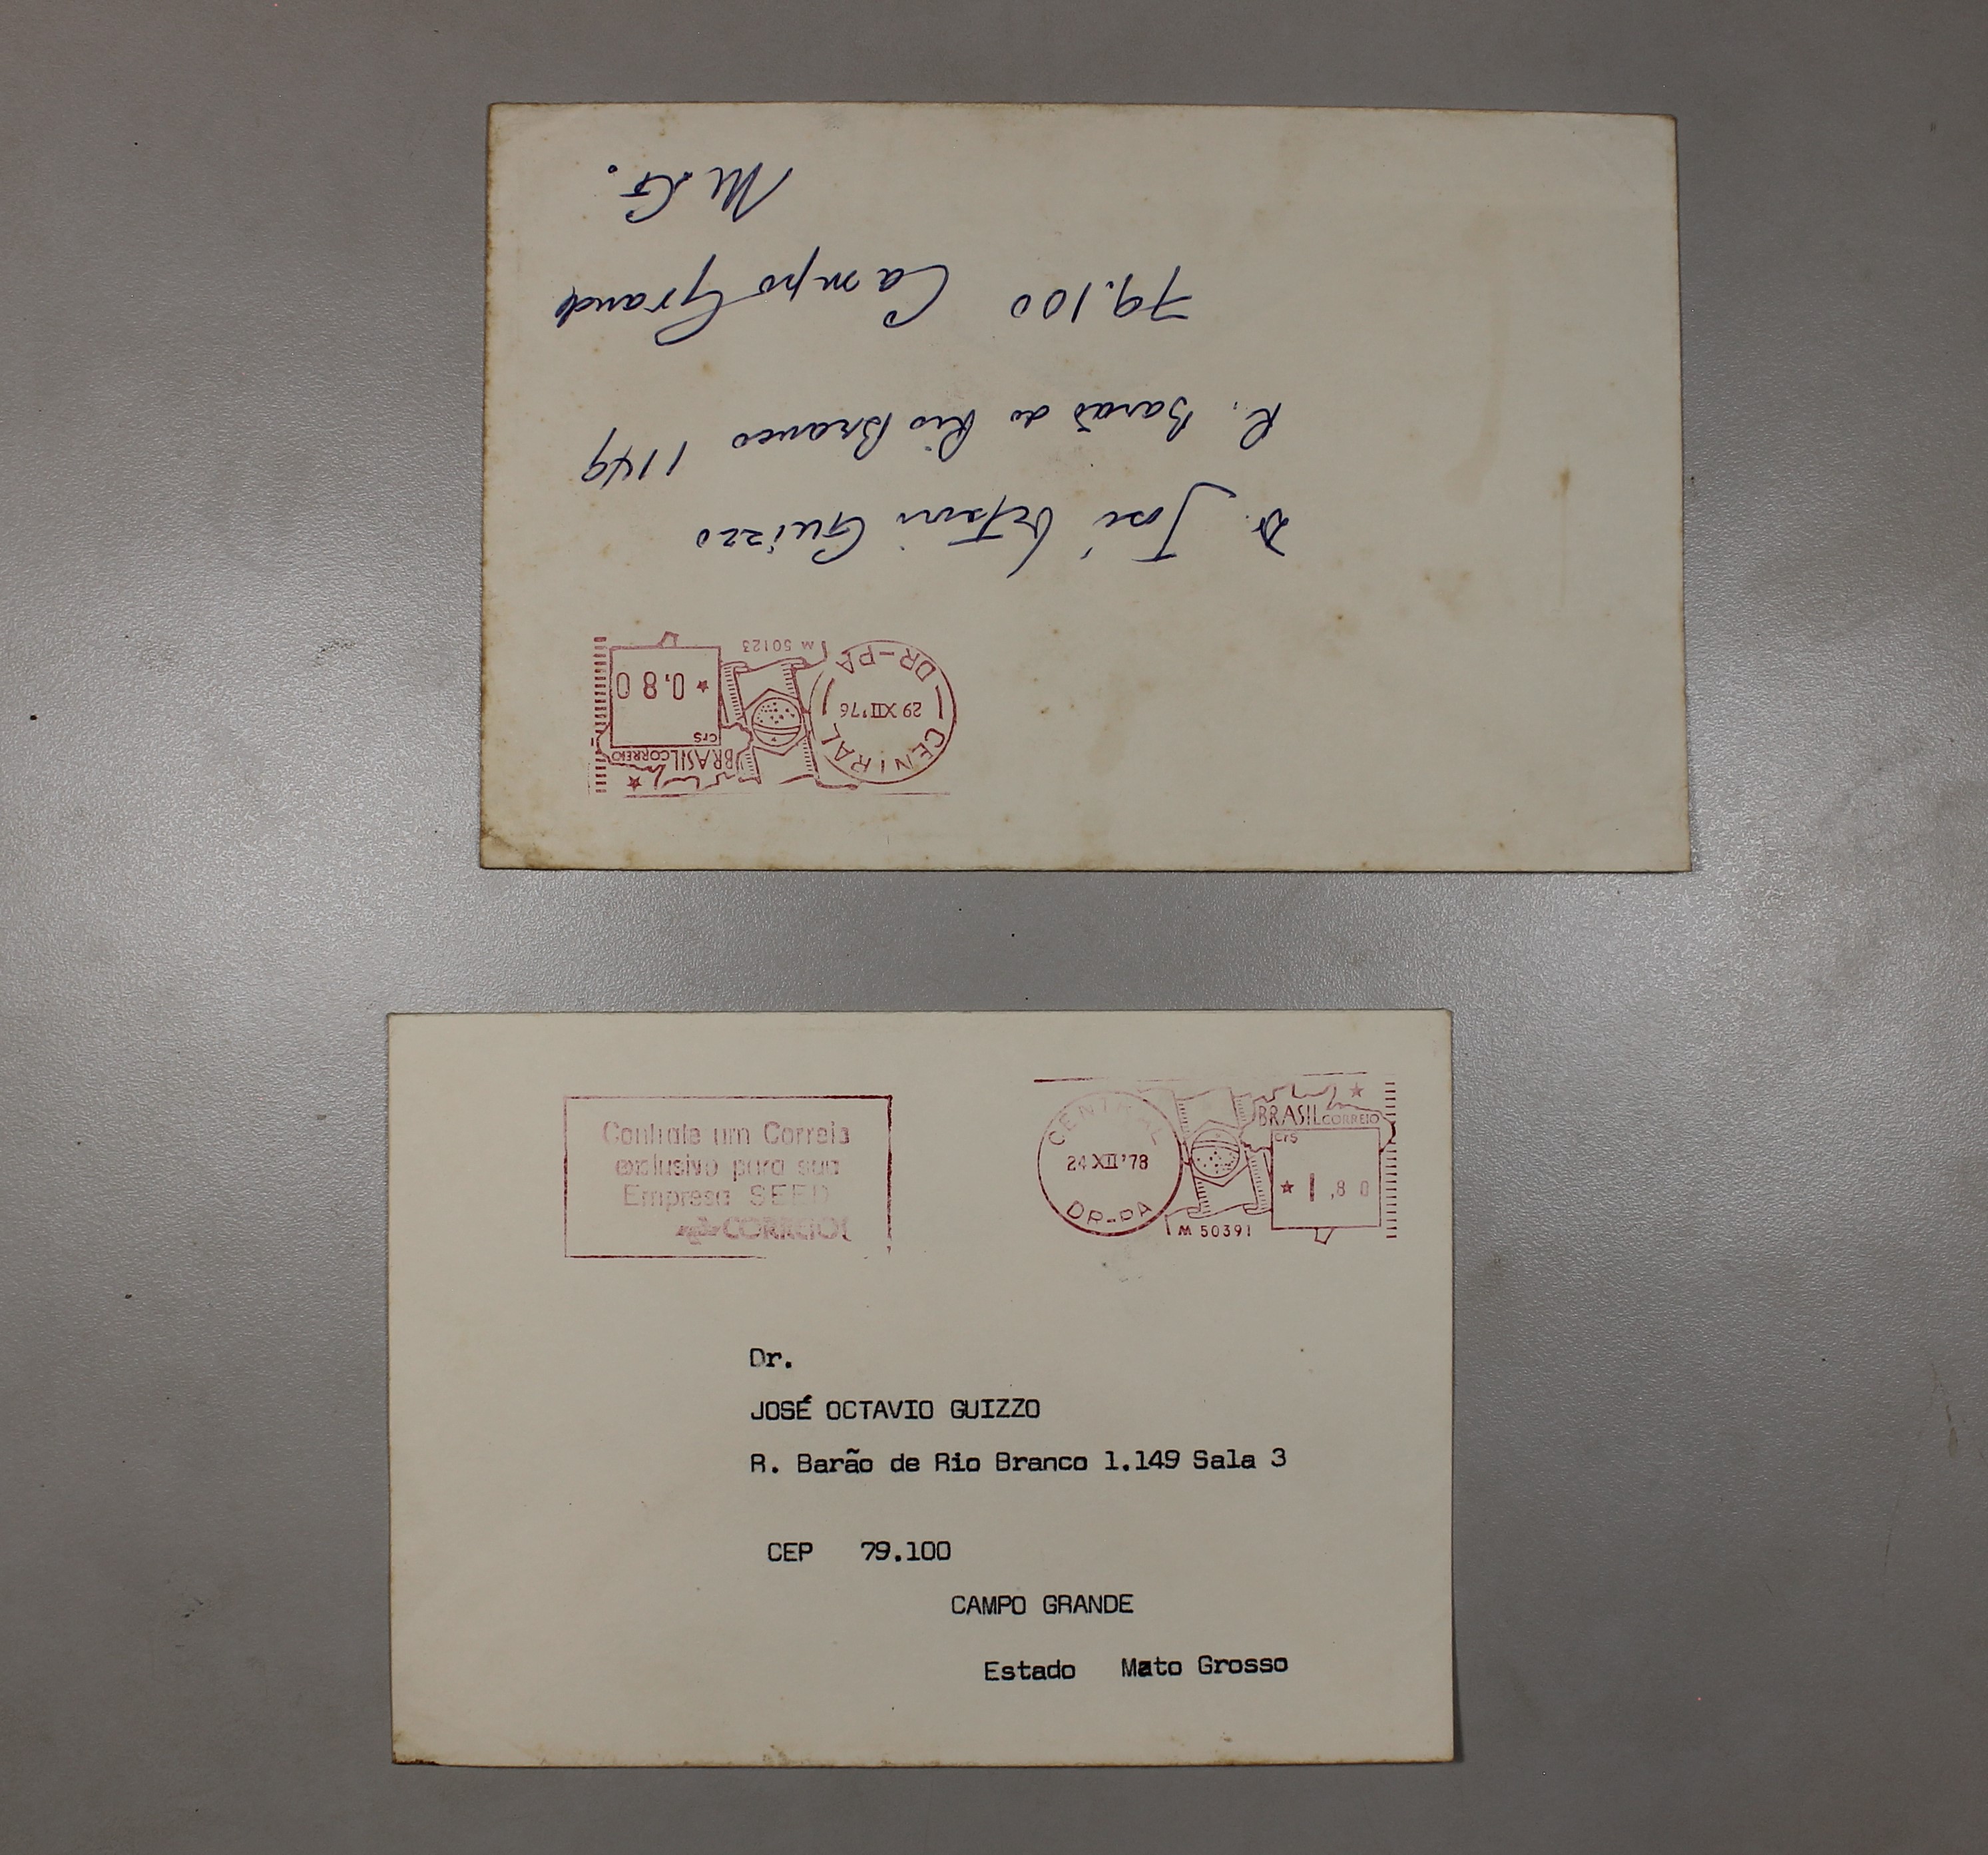 CENTRAL
29 XII '76
DR-PA
M 50123
BRASIL CORREIO
Cr$
★ 0,80
Dr. José Guizzo
R. Barão do Rio Branco 1149
79.100 Campo Grande
M.G.
Contrate um Correio
exclusivo para sua
Empresa SEED
CORREIO
CENTRAL
24 XII '78
DR-PA
M 50391
BRASIL CORREIO
Cr$
★ 1,80
Dr.
JOSÉ OCTAVIO GUIZZO
R. Barão de Rio Branco 1.149 Sala 3
CEP 79.100
CAMPO GRANDE
Estado Mato Grosso